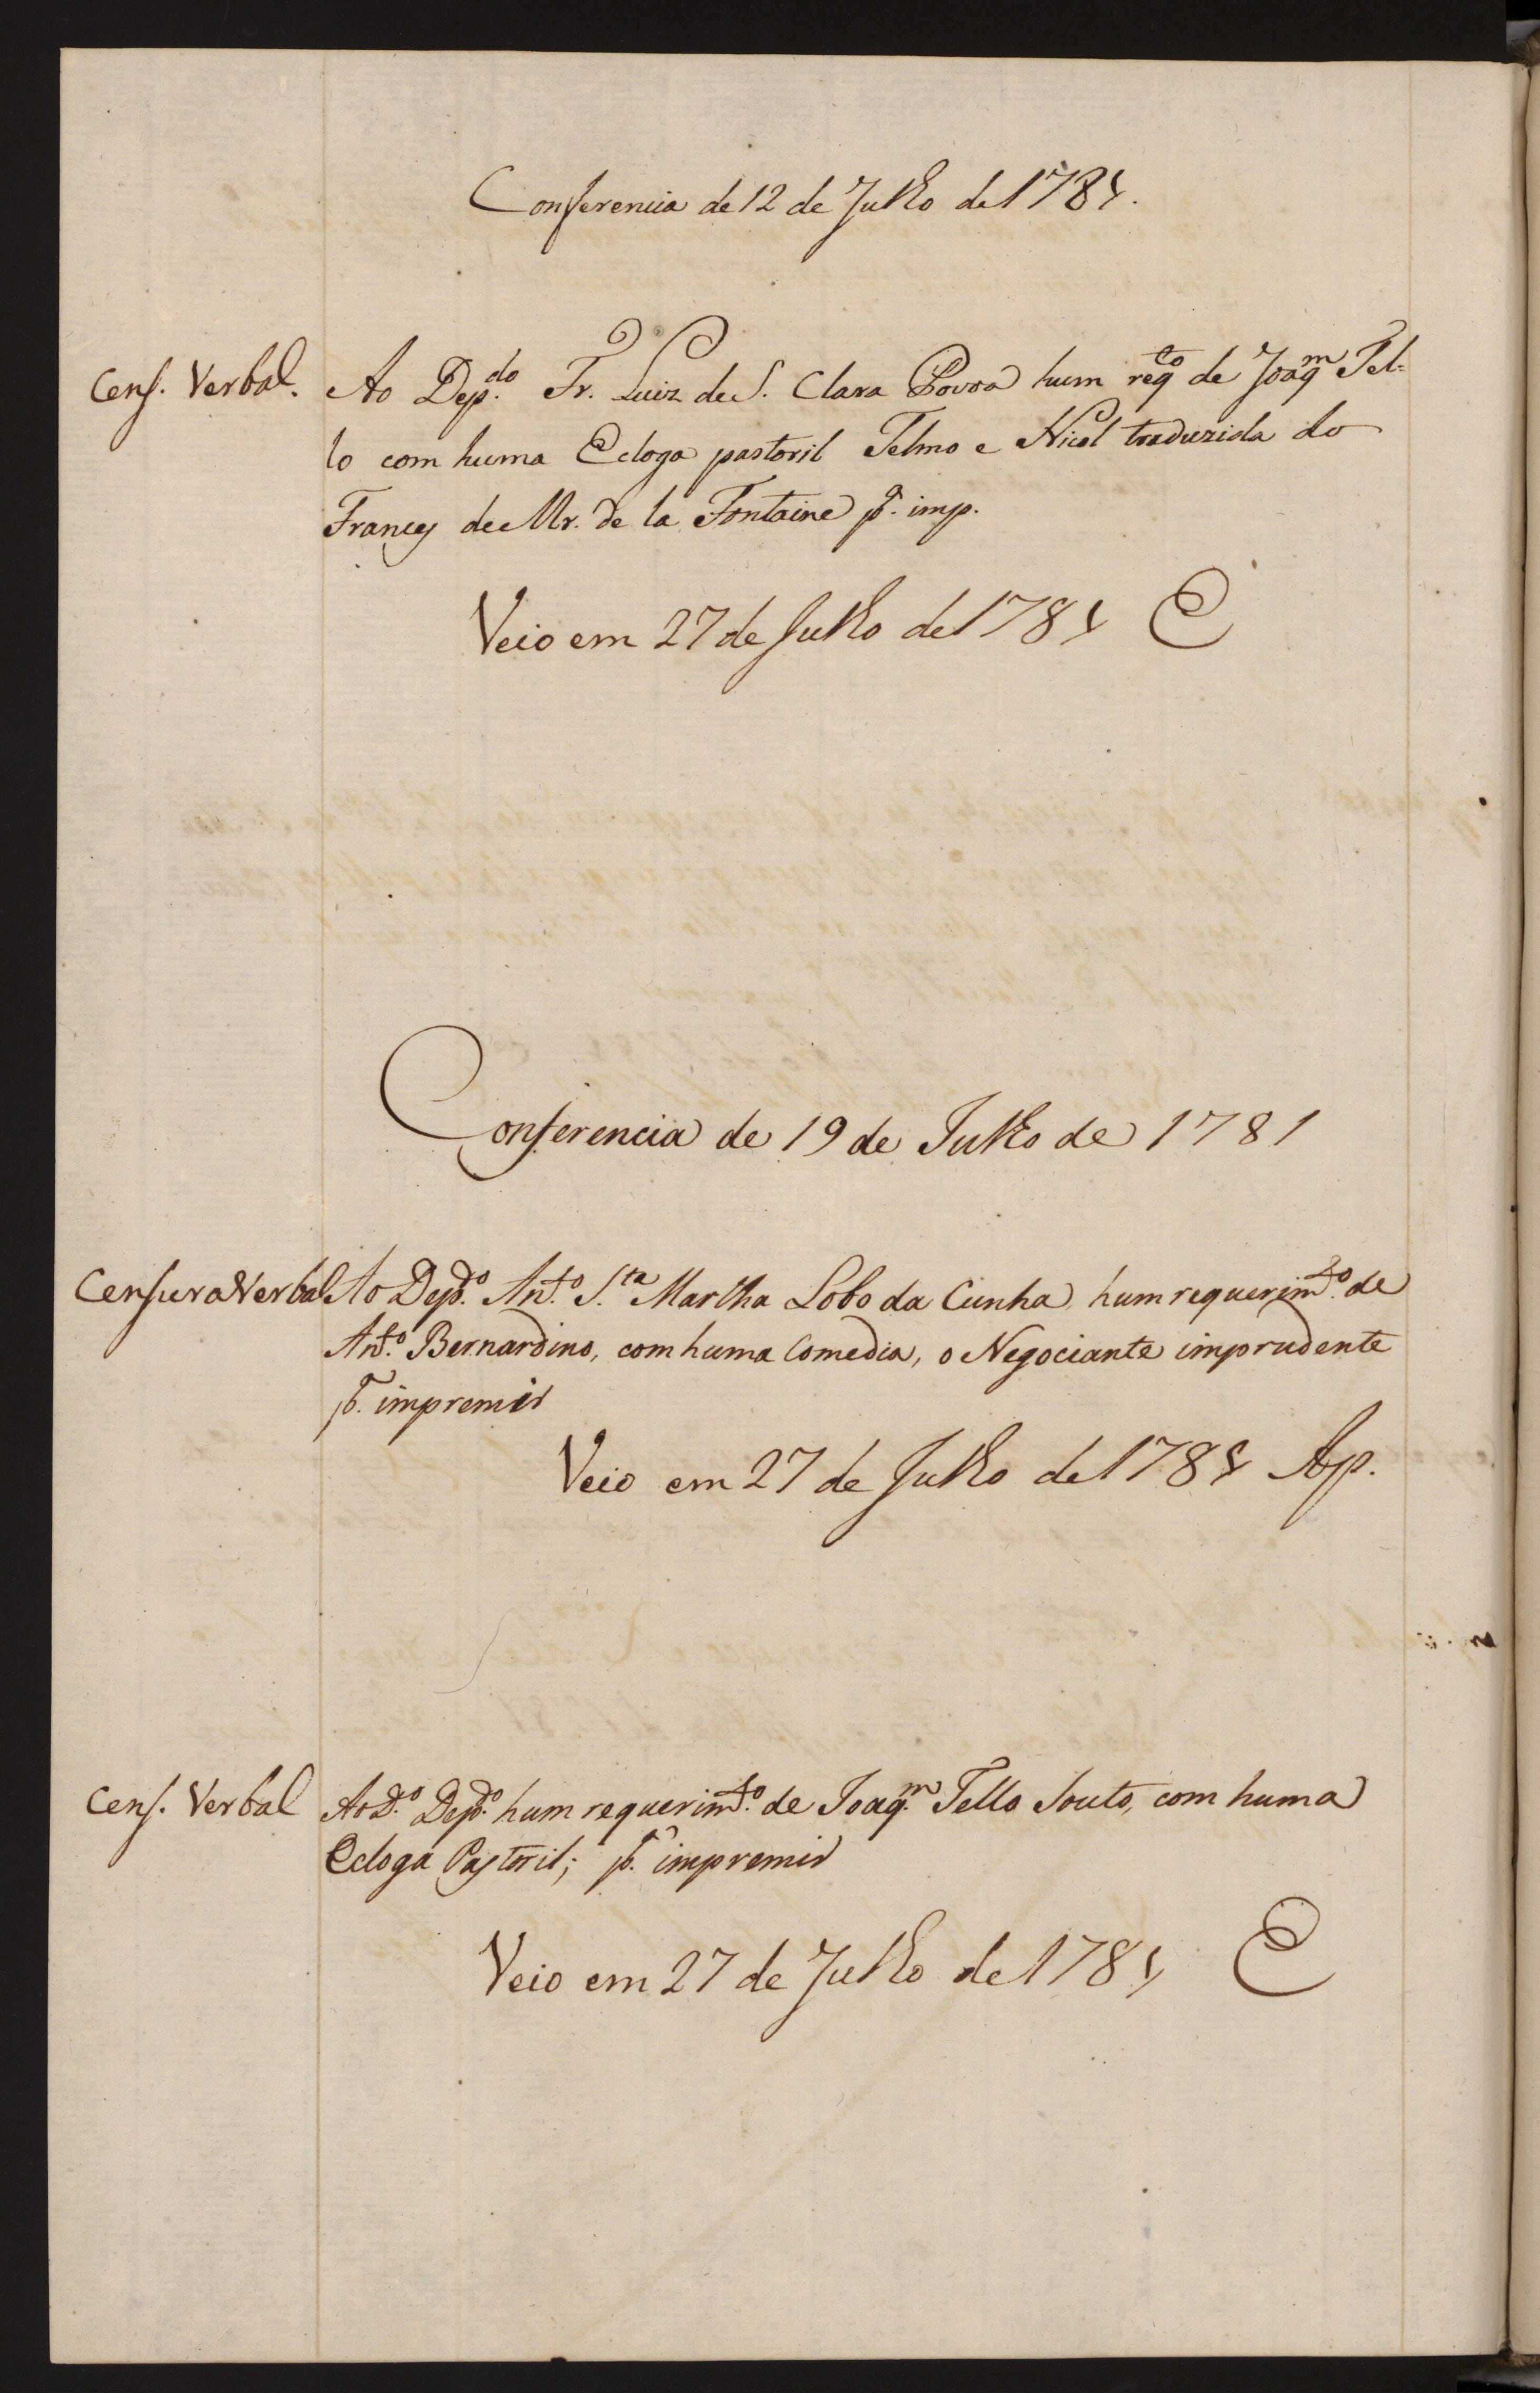 Conferencia de 12 de Julho de 1781.
Cens. Verbal. Ao Dep.do Fr. Luiz de S. Clara Povoa hum reqto de Joaqm Tel-
lo com huma Ecloga pastoril Telmo e Nicol traduzida do
Frances de Mr. de la Fontaine pa. imp.
Veio em 27 de Julho de 1781 E
Conferencia de 19 de Julho de 1781
Censura Verbal Ao Depdo. Anto. S.ta Martha Lobo da Cunha, hum requerimto. de
Anto. Bernardino, com huma Comedia, o Negociante imprudente
pa. impremir
Veio em 27 de Julho de 1781 Ap.
Cens. Verbal Ao D.o Depdo. hum requerimto. de Joaqm. Tello Souto, com huma
Ecloga Pastoril; pa. impremir
Veio em 27 de Julho de 1781 E